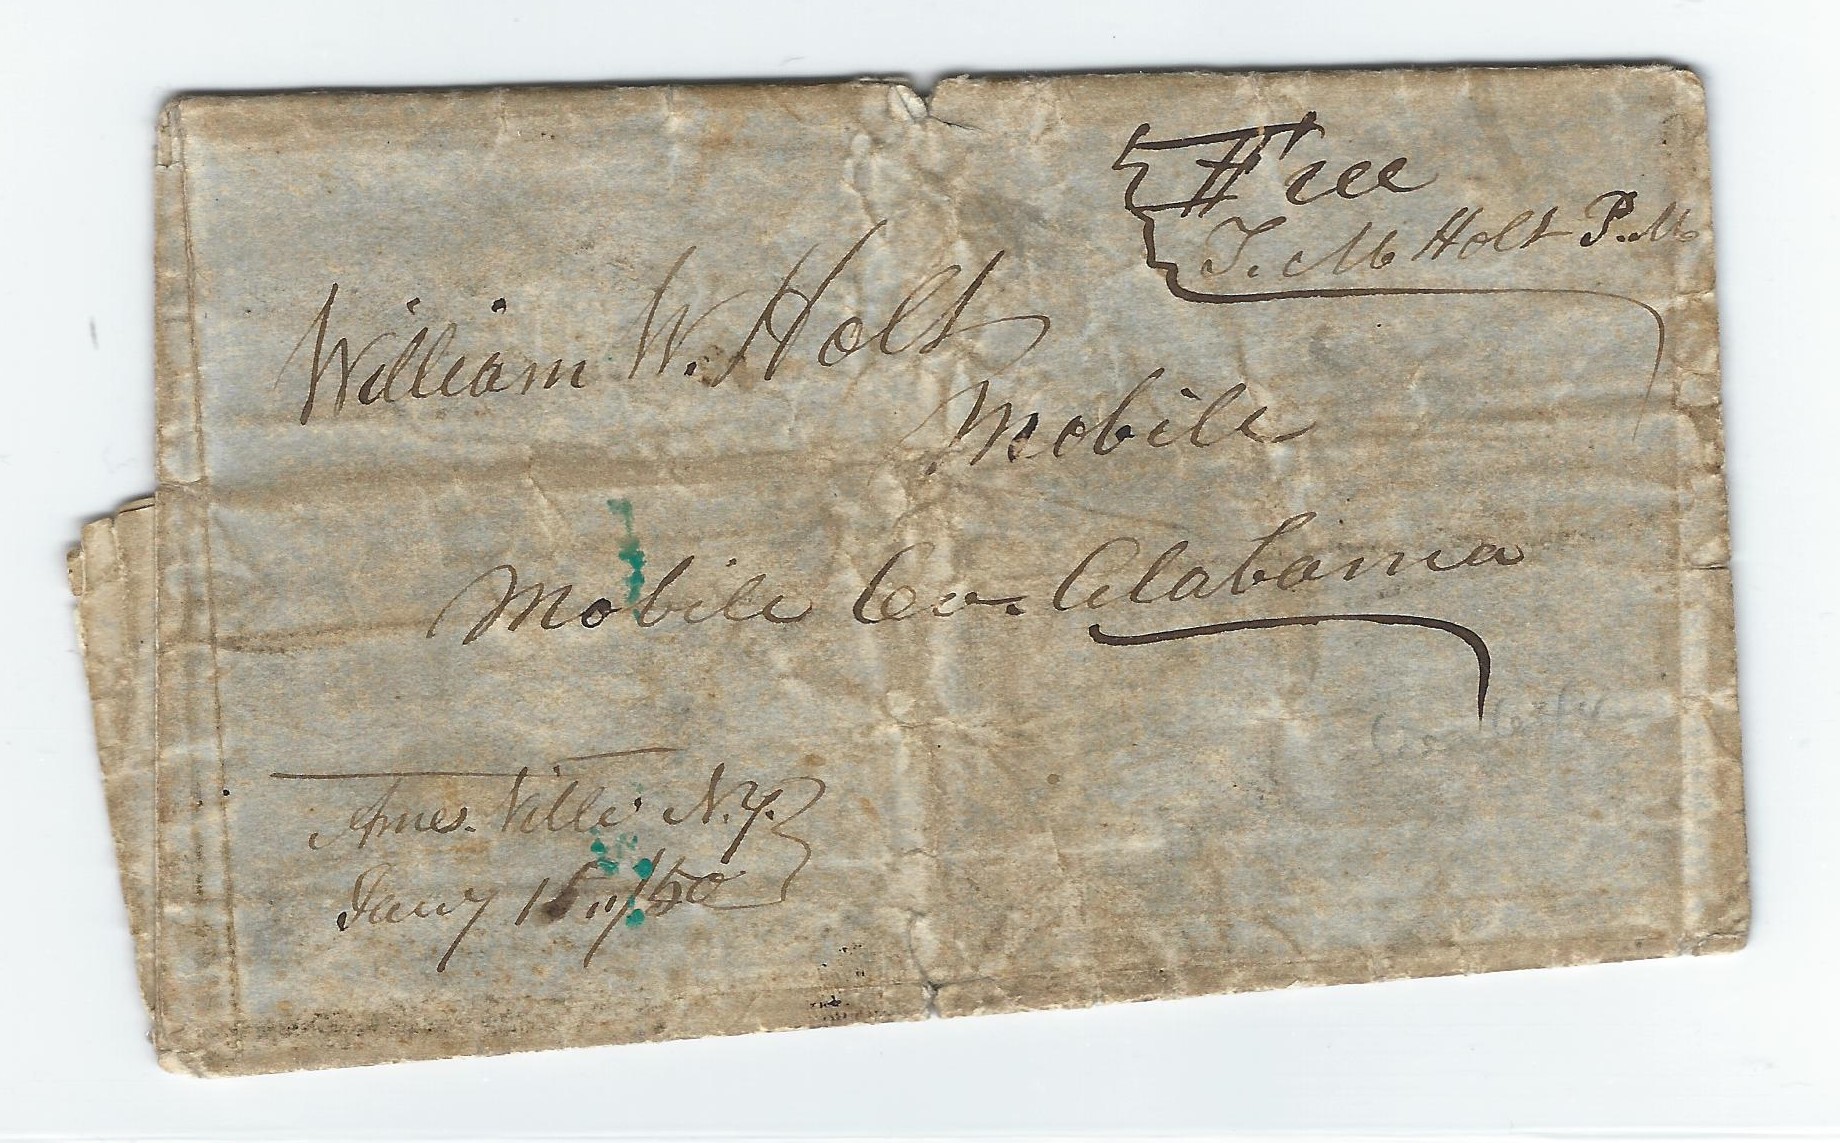 Free
T. M Holt P.M.
William W. Holt
Mobile
Mobile Co. Alabama
Ames. Ville N.Y.
Jany 15 "/50